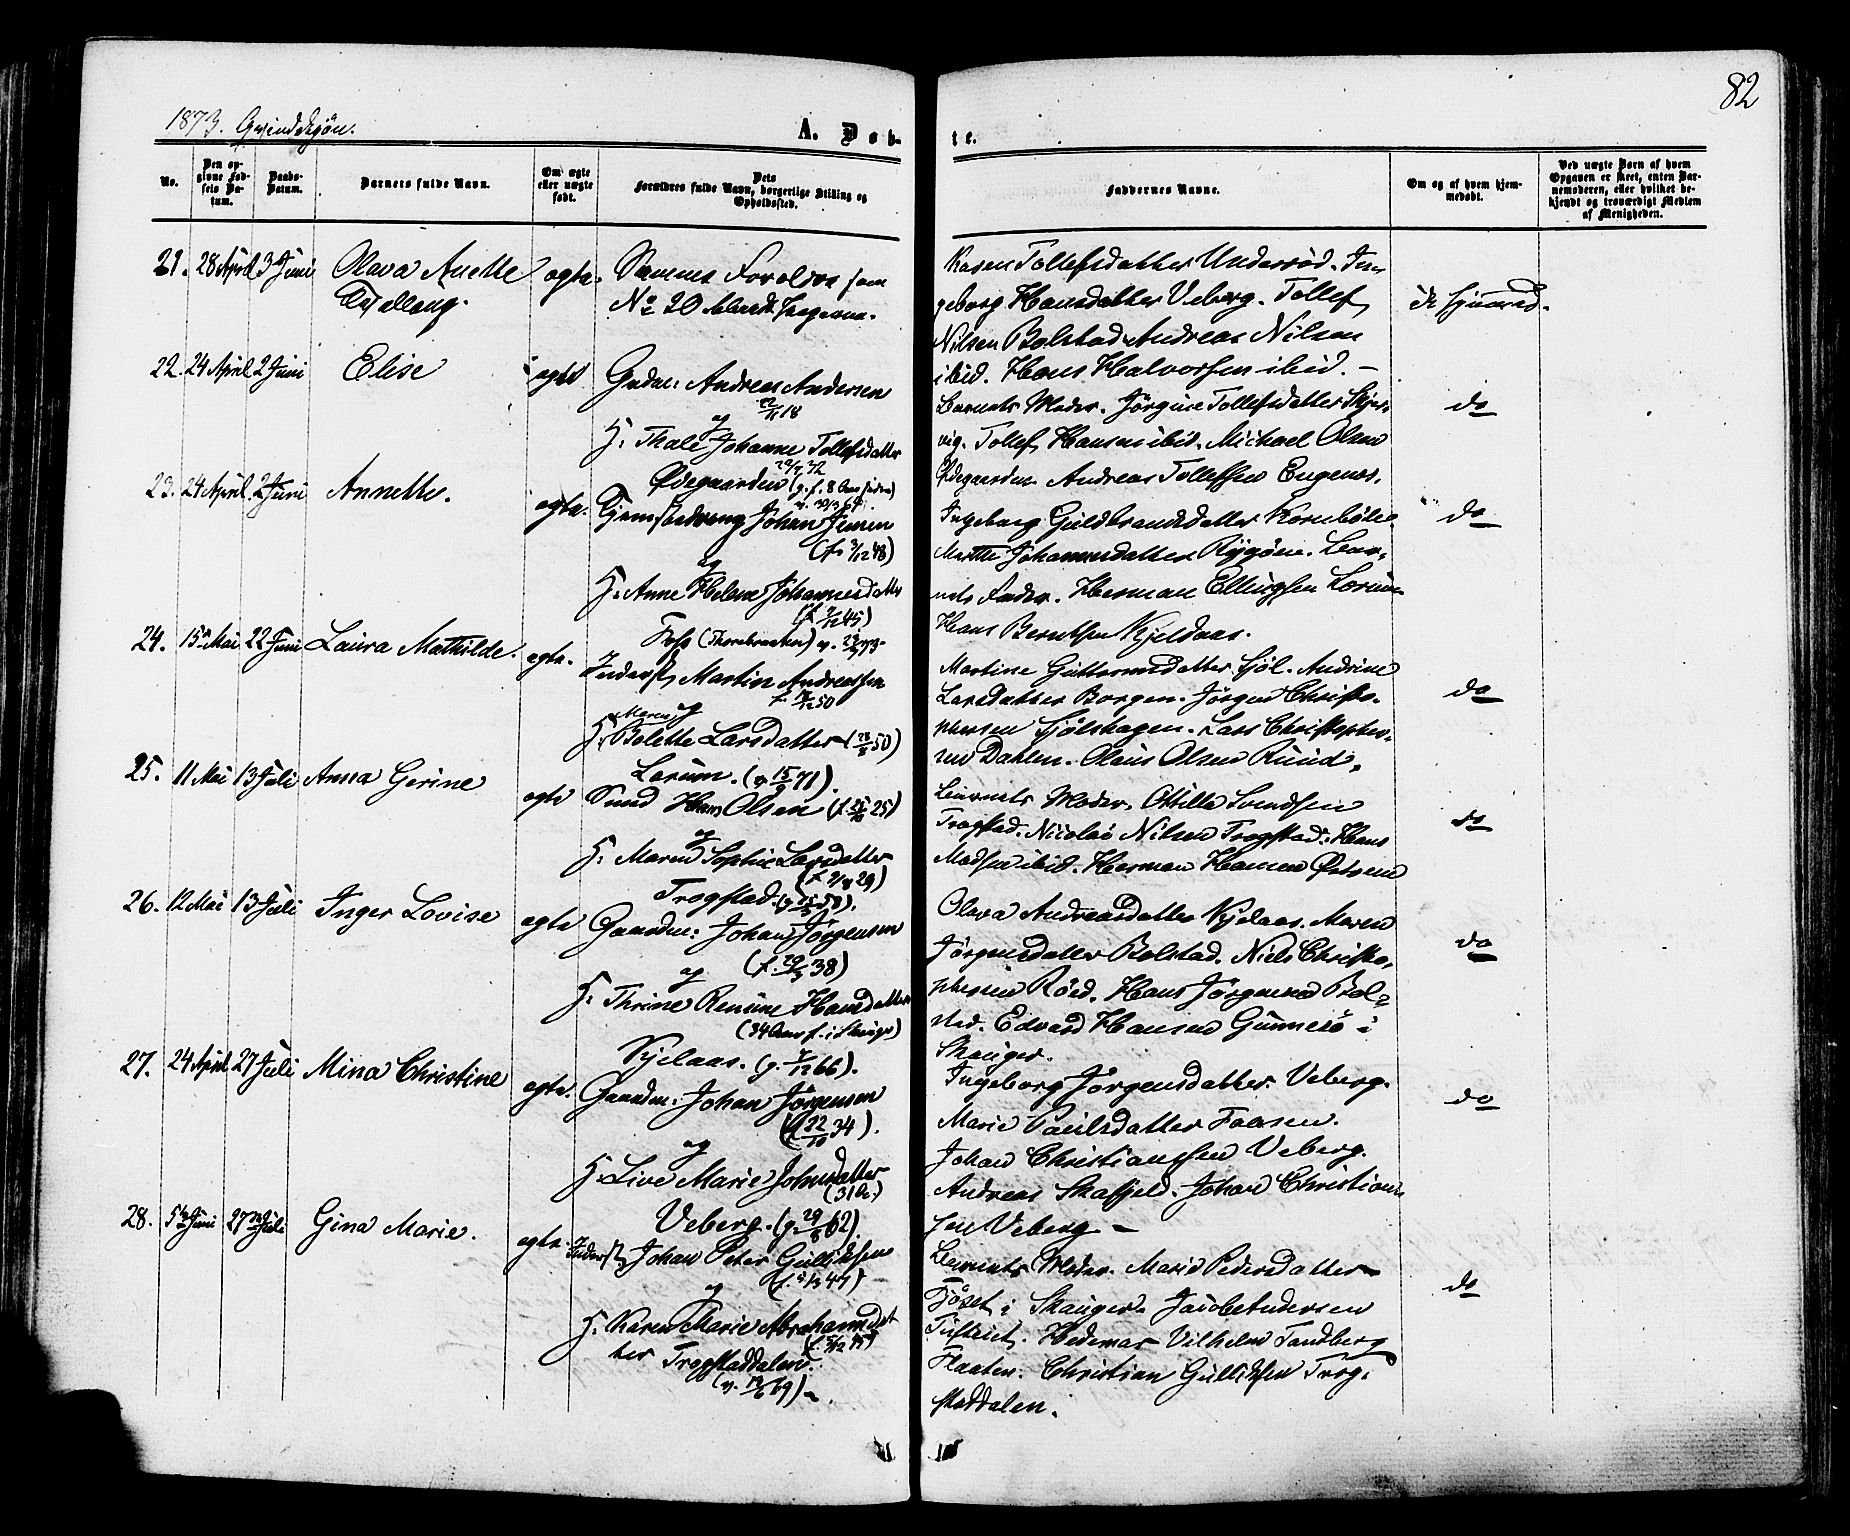 82
1873. Qvindekjön.
A. Døb-
te.
No.
Den op-
givne Fød-
sels Da-
tum.
Daabs-
Datum.
Barnets fulde Navn.
Om ægte
eller uægte
født.
Dets
Forældres fulde Navn, borgerlige Stilling og
Opholdssted.
Faddernes Navne.
Om og af hvem hjem-
medøbt.
Ved uægte Barn af hvem
Opgaven er skeet, enten Bar-
nemoderen, eller hvilket be-
kjendt og troværdigt Medlem
af Menigheden.
21. 28 April 3 Juni Olava Anette
ægte. Samme Forældre som
No 20 blandt
Karen Tollefsdatter Underrød. In-
geborg Hansdatter Veberg. Tollef
Nilsen Bolstad. Andreas Nilsen
ibid. Hans Halvorsen ibid. —
ik hjemmed.
22. 24 April 2 Juni Elise
ægte Gndm: Andreas Andersen
og
H: Thale Johanne Tollefsdatter
Ødegaarden (g. f. 8 Aar siden)
Barnets Moder. Jörgine Tollefsdatter Skjer-
vig. Tollef Hansen ibid. Michael Olsen
Ødegaarden. Andreas Tollefsen Engenes.
do
23. 24 April 2 Juni Annette.
ægte. Johan Jensen
(f. 3/12 48)
og
H: Anne Helene Johannesdatter
Foss
Ingeborg Guldbrandsdatter Kornbölle
Marthe Johannesdatter Rygöne. Bar-
nets Fader. Herman Ellingsen Lorum
Hans Berntsen Kjeldaas.
do
24. 15de Mai 22 Juni Laura Mathilde.
ægte. Inderst Martin Andreassen
og
Maren
H: Bolette Larsdatter (28/8 50)
Lorum. (v. 15/9 71).
Martine Guttormsdatter Fjöl. Andrine
Larsdatter Borgen. Jörgen Christo-
phersen Fjölshagen. Lars Christopher-
sen Dahlen. Olaus Olsen Ruud.
do
25. 11 Mai 13 Juli Anna Gerine
ægte Hans Olsen (f. 25/10 25)
og
H: Maren Sophie Larsdatter
(f. 9/8 29)
Trogstad.
Barnets Moder. Otille Svendsen
Trogstad. Nicolai Nilsen Trogstad. Hans
Madsen ibid. Herman Hansen
do
26. 12 Mai 13 Juli Inger Lovise
ægte Gaardm: Johan Jörgensen
og (f. 29/9 38)
H: Thrine Rensine Hansdatter
(34 Aar f. i Skauger)
Kjelaas. (g. 7/12 66).
Olava Andreasdatter Kjelaas. Maren
Jörgensdatter Bolstad. Niels Christo-
phersen Röed. Hans Jörgensen Bol-
stad. Edvard Hansen Gunnerö i
Skauger.
do
27. 24 April 27 Juli Mina Christine
ægte. Gaardm: Johan Jörgensen
(f. 22/10 34).
og
H: Live Marie Johnsdatter
(31 A.)
Veberg. (g. 29/8 62).
Ingeborg Jörgensdatter Veberg.
Marie Paulsdatter Faasen.
Johan Christianssen Veberg.
Andreas Skafjeld. Johan Christian-
sen Veberg —
do
28. 5te Juni 27de Juli Gina Marie.
ægte. Inderst Johan Peter Gulliksen
og
H: Karen Marie Abrahamsdat
ter Trogstaddalen.
Barnets Moder. Marie Pedersdatter
Fjöset i Skauger. Jacob Andersen
Tuftriet. Hedemar Vilhelm Sandberg
Flaaten. Christian Gulliksen Trog-
staddalen.
do